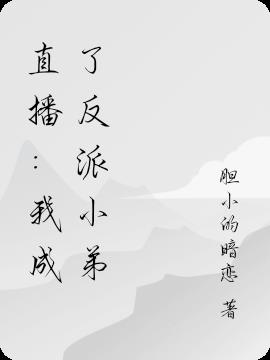 直播：我成
了反派小弟
胆小的暗恋 著